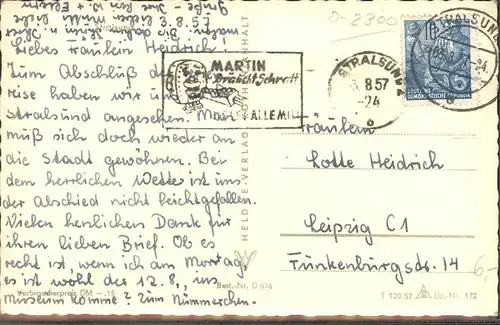 3.8.57
Liebes Fräulein Heidrich!
Zum Abschluß der
reise haben wir uns
Stralsund angesehen. Man
muß sich doch wieder an
die Stadt gewöhnen. Bei
dem herrlichen Wetter ist uns
der Abschied nicht leichtgefallen.
Vielen herzlichen Dank für
ihren lieben Brief. Ob es
recht ist, wenn ich am Montag,
es ist wohl der 12.8., ins
Museum komme? zum
Verbraucherpreis DM -,15
Best.-Nr. D 676
MARTIN
braucht Schrott
ALLE MIT
STRALSUND
3.8.57
-24
STRALSUND
DEUTSCHE
DEMOKRATISCHE REPUBLIK
D-2300
Fräulein
Lotte Heidrich
Leipzig C1
Funkenburgstr. 14
6,-
T 120/57 Liz.-Nr. 172